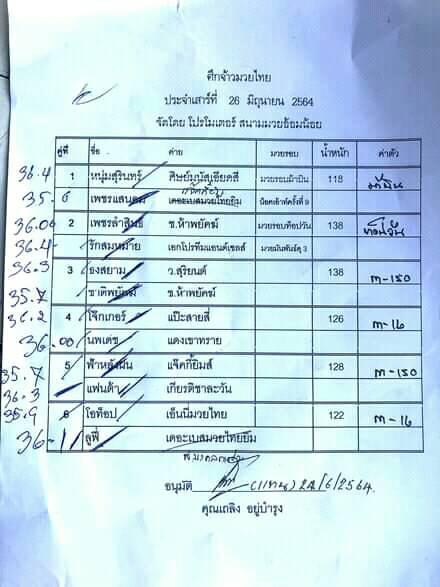 ศึกจ้าวมวยไทย
ประจำเสาร์ที่ 26 มิถุนายน 2564
จัดโดย โปรโมเตอร์ สนามมวยอ้อมน้อย
คู่ที่ ชื่อ ค่าย มวยรอบ น้ำหนัก ค่าตัว
36.4 1 หนุ่มสุรินทร์ ศิษย์นุมัสเอียดสี มวยรอบผ้าป่าน 118
35.6 เพชรแสนคม เดอะเบสมวยไทยยิม น็อคเอ้าท์ครั้งที่ 9
36.00 2 เพชรลำสินธ์ ช.ห้าพยัคฆ์ มวยรอบท้อปวัน 138 ท็อปวัน
36.4 รักสมหมาย เอกโปรทีมแอนด์เซลส์ มวยมันพันธุ์ดุ 3
36.3 3 ธงสยาม ว.สุริยนต์ 138 m-150
35.7 ชาติพยัคฆ์ ช.ห้าพยัคฆ์
36.2 4 โจ๊กเกอร์ แป๊ะสายสี่ 126 m-16
36.00 นพเดช แดงเขาทราย
35.7 5 ฟ้าหลังฝน แจ็คกี้ยิมส์ 128 m-150
36.3 แฟนต้า เกียรติชาละวัน
35.9 6 โอท็อป เอ็นนี่มวยไทย 122 m-16
36-1 ลูฟี่ เดอะเบสมวยไทยยิม
อนุมัติ (แทน) 24/6/2564
คุณเถลิง อยู่บำรุง